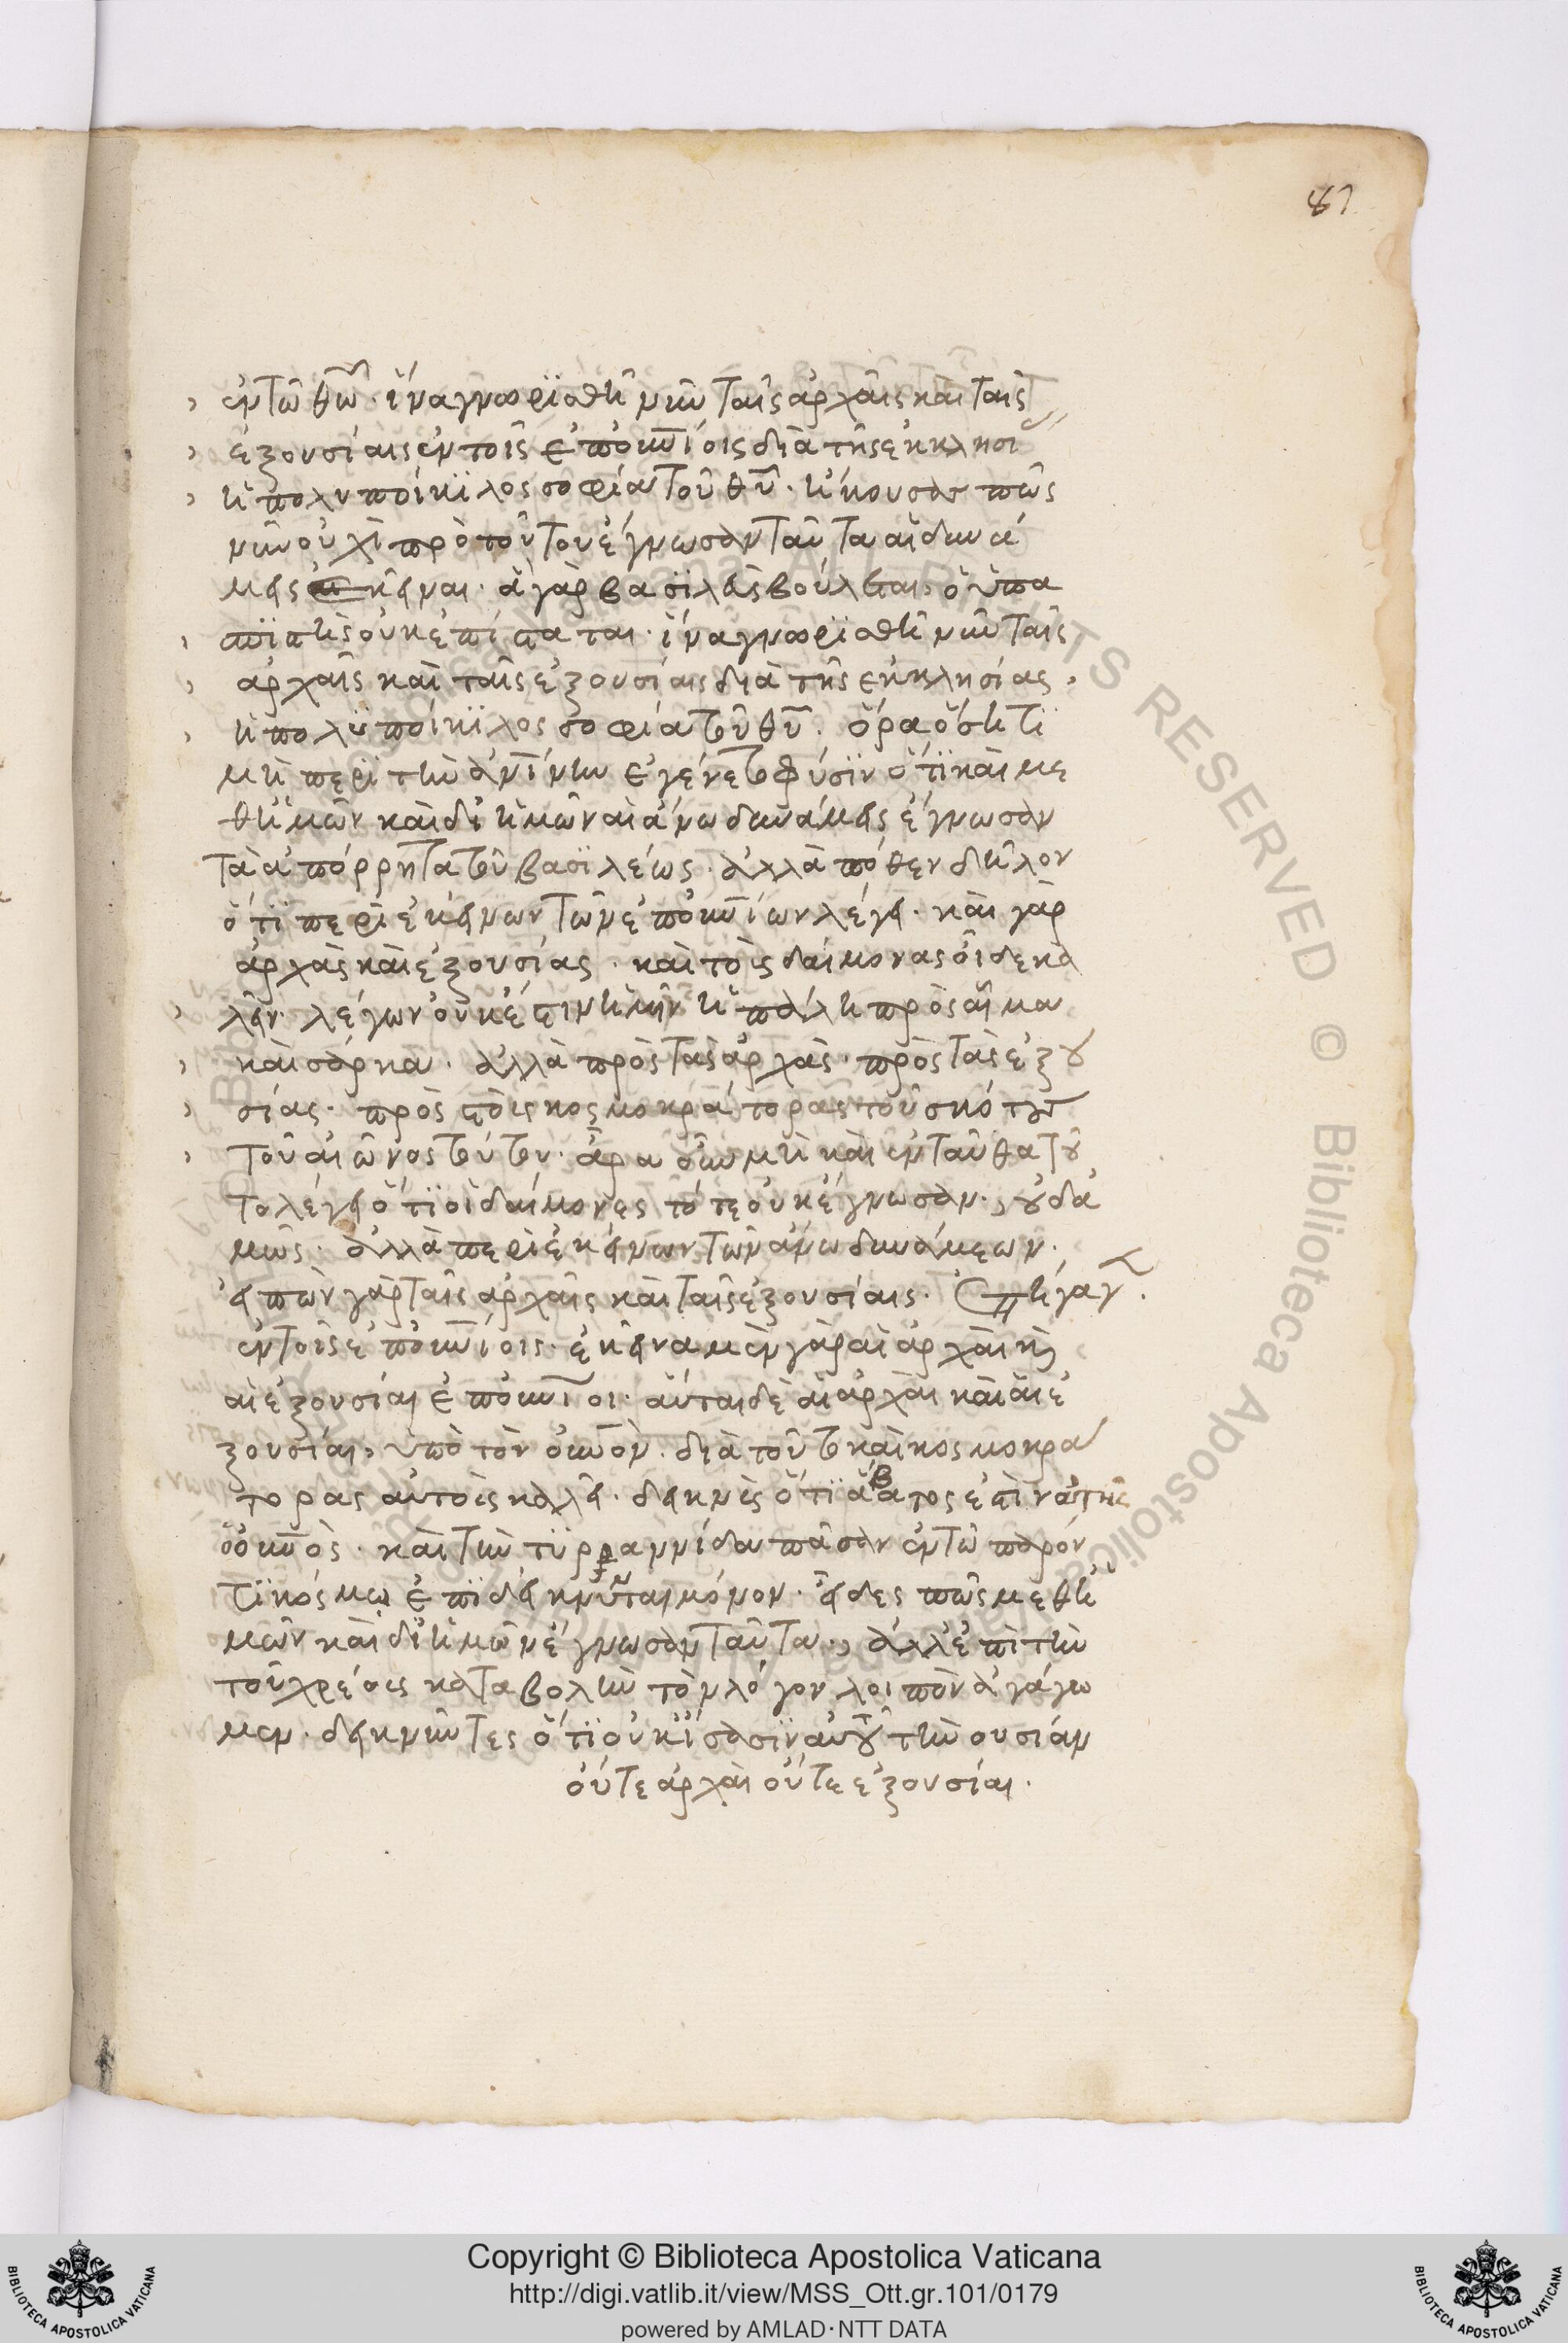 87
ἐν τῶ θω̅· ἵνα γνωρϊσθῆ νῦν ταῖς ἀρχαῖς καὶ ταῖς
ἐξουσίαις ἐν τοῖς ἐπουνίοις διὰ τῆς ἐκκλησί
ἡ πολυποίκϊλος σοφία τοῦ θυ̅· ἤκουσας πῶς
νῦν οὐχὶ πρὸ τούτου ἔγνωσαν ταῦτα αἱ δυνά
μεις ἐκεῖναι· ἃ γὰρ βασϊλεὺς βούλεται· ὁ ὑπα
σπϊστὴς οὐκ ἐπίσταται· ἵνα γνωρϊσθῆ νῦν ταῖς
ἀρχαῖς καὶ ταῖς ἐξουσίαις διὰ τῆς ἐκκλησίας,
ἡ πολϋποίκϊλος σοφία τοῦ θυ̅· ὅρα ὅση τϊ
μὴ περὶ τὴν ἀνίνην ἐγένετο φύσϊν ὅτϊ καὶ με
θημῶν καὶ δι ἡμῶν αἱ ἄνω δυνάμεις ἔγνωσαν
τὰ ἀπόρρητα τοῦ βασϊλέως· ἀλλὰ πόθεν δῆλον
ὅτϊ περὶ ἐκείνων τῶν ἐπουνίων λέγει· καὶ γὰρ
ἀρχὰς καὶ ἐξουσίας· καὶ τοὺς δαίμονας οἶδε κα
λεῖν· λέγων οὐκ ἔστιν ἡμῖν ἡ πάλη πρὸς αἷμα
καὶ σάρκα· ἀλλὰ πρὸς τὰς ἀρχὰς· πρὸς τὰς ἐξου
σίας· πρὸς τοὺς κοσμοκράτορας τοῦ σκότους
τοῦ αἰῶνος τούτου· ἆρα οὖν μὴ καὶ ἐνταῦθα τοῦ
το λέγει ὅτϊ οἱ δαίμονες τότε οὐκ ἔγνωσαν·, οὐδα
μῶς· ἀλλὰ περὶ ἐκείνων τῶν ἄνω δυνάμεων·
εἰπὼν γὰρ ταῖς ἀρχαῖς καὶ ταῖς ἐξουσίαις· ἐπήγαγ·
ἐν τοῖς ἐπουνίοις· ἐκεῖναι μὲν γὰρ αἱ ἀρχαὶ κ
αἱ ἐξουσίαι ἐπουνιοι· αὗται δὲ αἱ ἀρχαὶ καὶ αἱ ἐ
ξουσίαι, ὑπὸ τὸν οὐνὸν· διὰ τοῦτο καὶ κοσμοκρα
τορας αὐτοὺς καλεῖ· δεικνὺς ὅτϊ ἄβατος ἐστὶν αὐτοῖς
ὁ οὐνὸς· καὶ τὴν τϋραννίδα πᾶσαν ἐν τῶ παρόν
τϊ κόσμω ἐπϊδείκνυνται μόνον· εἶδες πῶς μεθη
μῶν καὶ δϊ ἡμῶν ἔγνωσαν ταῦτα·, ἀλλ ἐπὶ τὴν
τοῦ χρέους καταβολὴν τὸν λόγον λοιπὸν ἀγάγω
μεν· δεικνῦντες ὅτϊ οὐκ ἴσασϊν αὐτοῦ τὴν ουσίαν
οὔτε ἀρχαὶ οὔτε ἐξουσίαι·
Copyright © Biblioteca Apostolica Vaticana
http://digi.vatlib.it/view/MSS_Ott.gr.101/0179
powered by AMLAD·NTT DATA